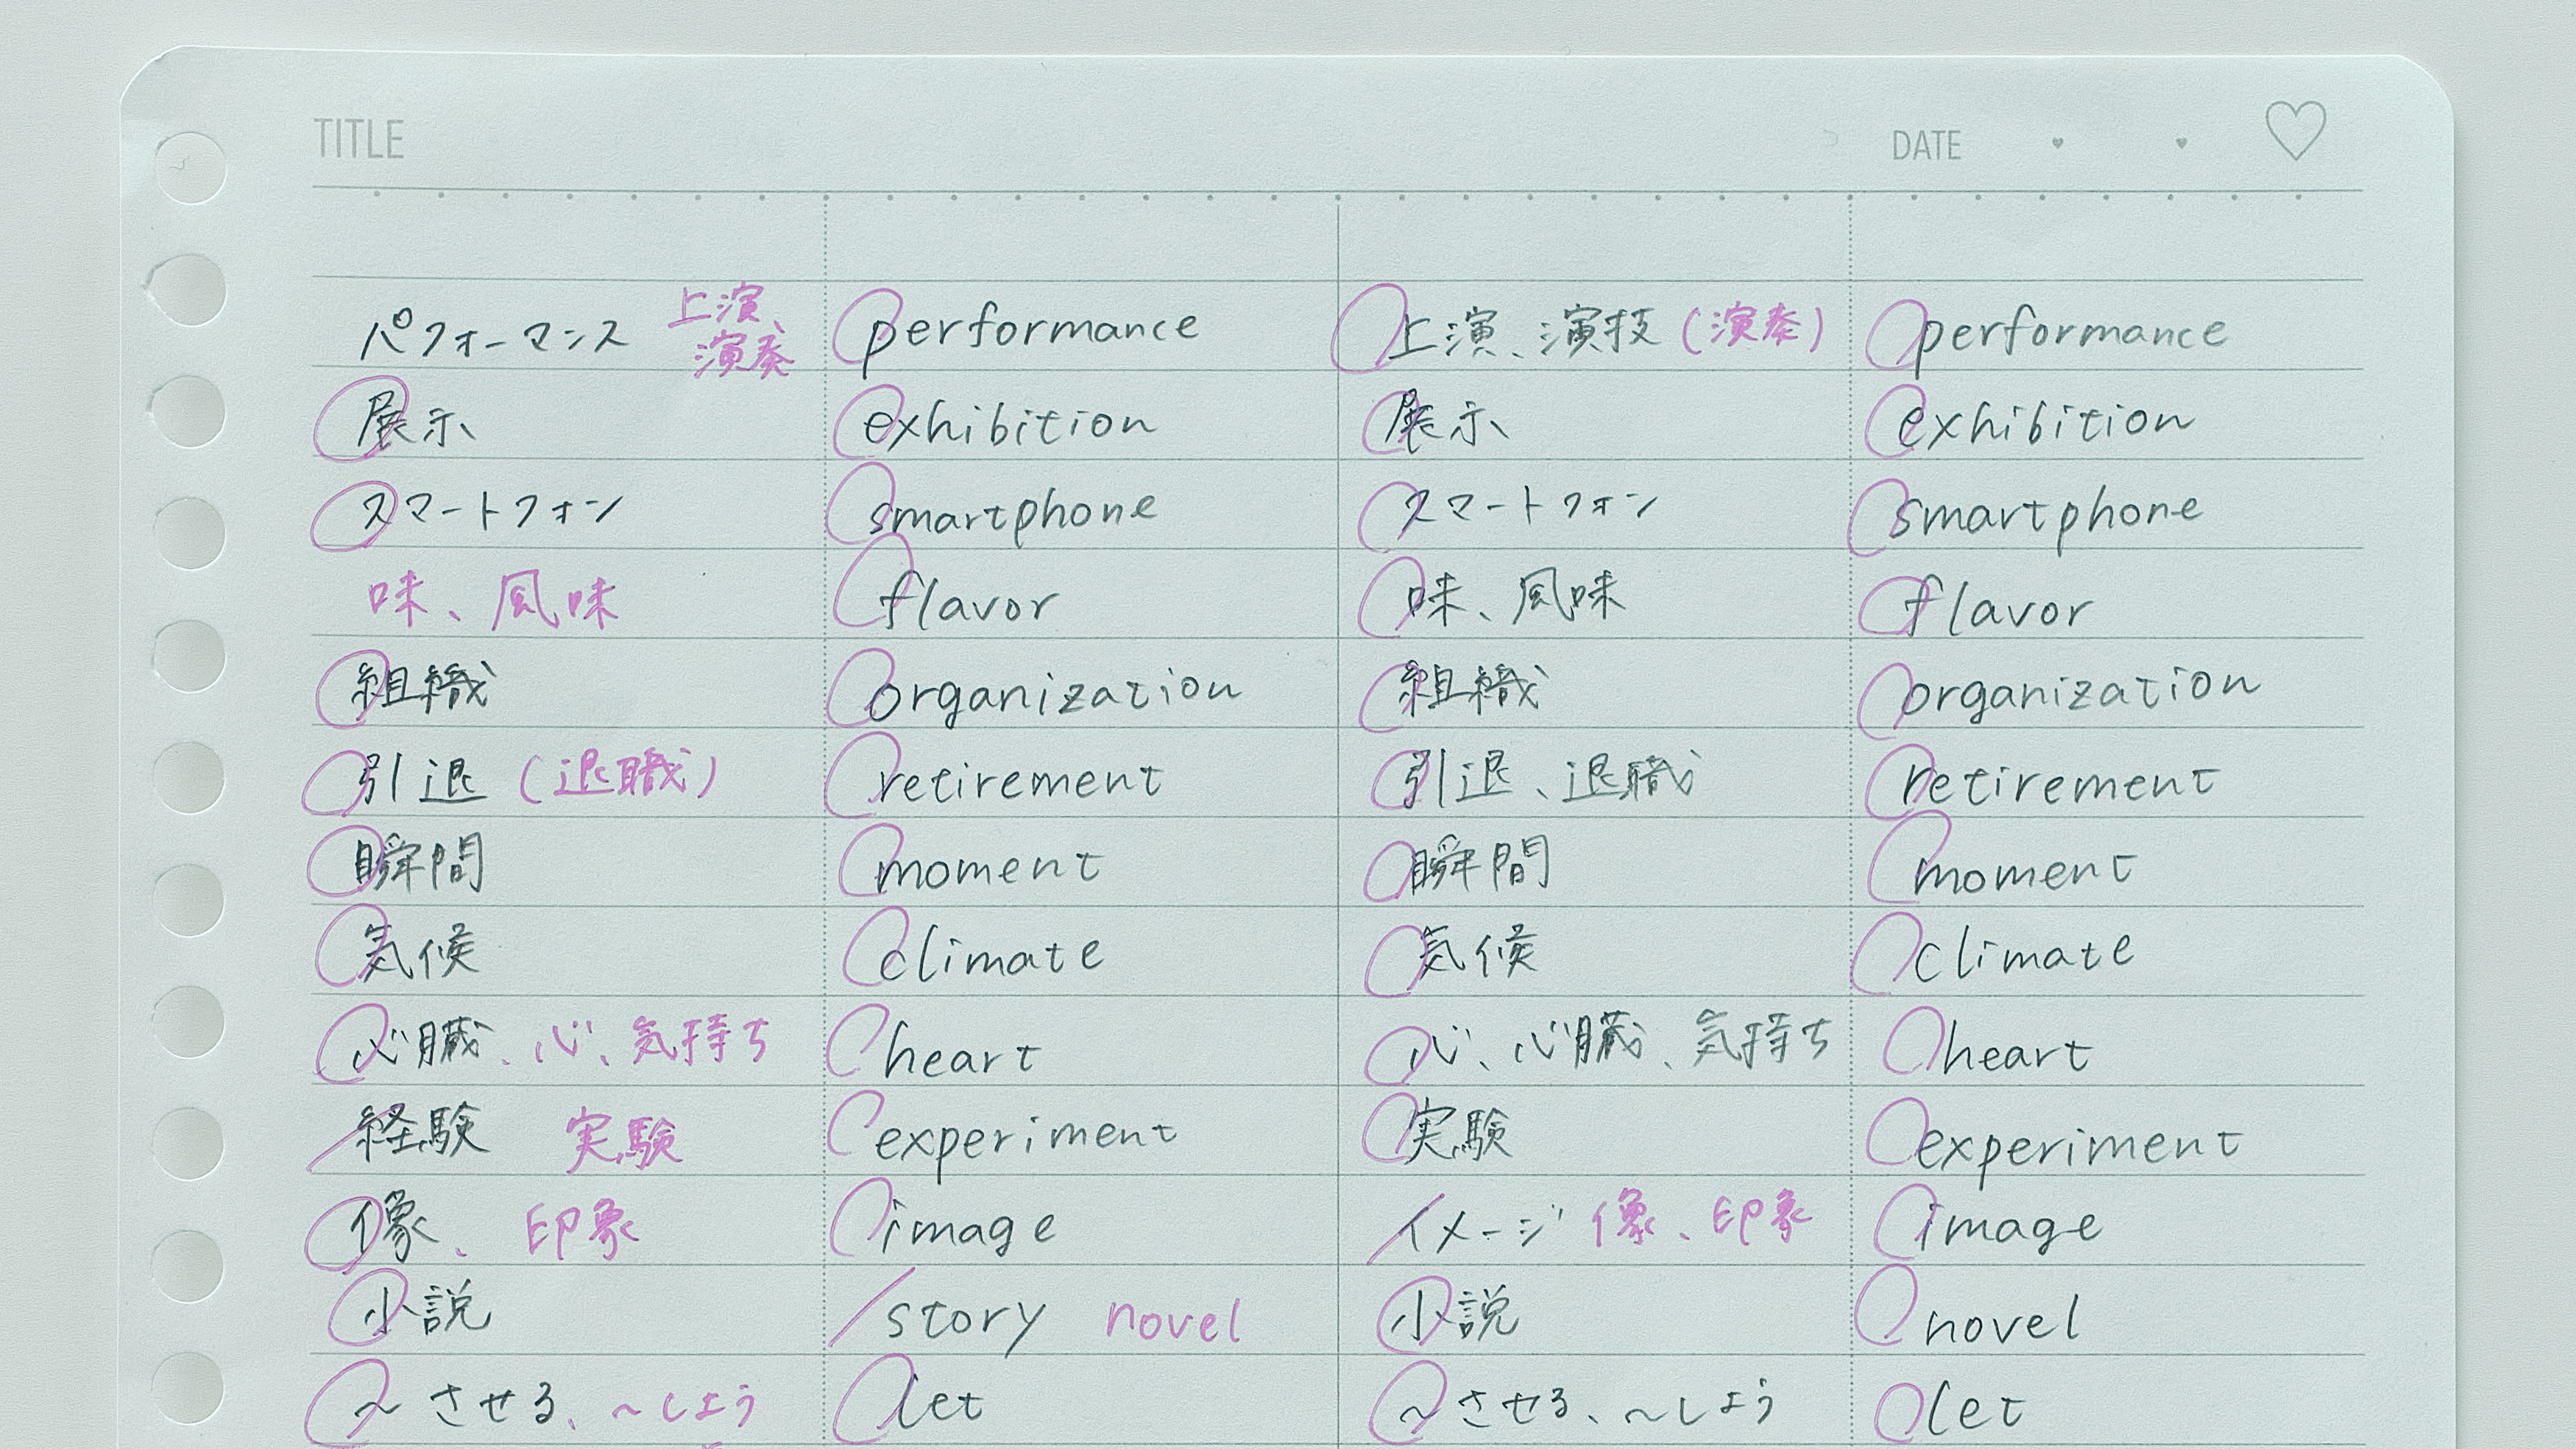 TITLE DATE
パフォーマンス 上演、演奏 performance 上演、演技(演奏) performance
展示 exhibition 展示 exhibition
スマートフォン smartphone スマートフォン smartphone
味、風味 flavor 味、風味 flavor
組織 organization 組織 organization
引退(退職) retirement 引退、退職 retirement
瞬間 moment 瞬間 moment
気候 climate 気候 climate
心臓、心、気持ち heart 心、心臓、気持ち heart
経験 実験 experiment 実験 experiment
像、印象 image イメージ 像、印象 image
小説 story novel 小説 novel
〜させる、〜しよう let 〜させる、〜しよう let